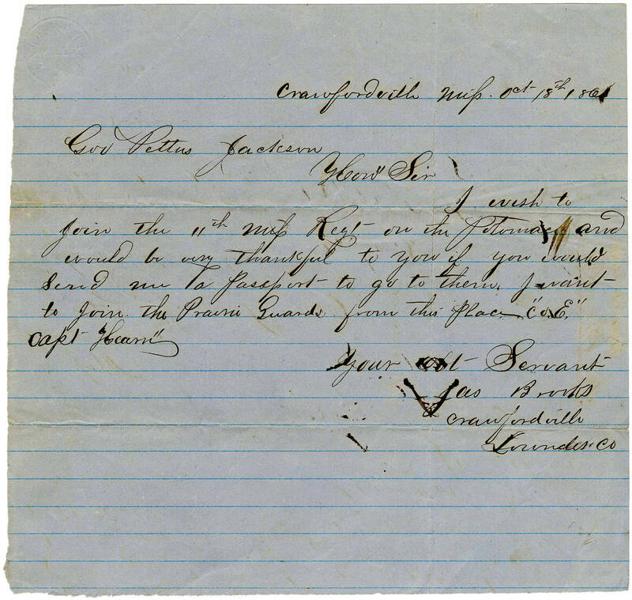 Crawfordville Miss. Oct 18th 1861
Gov Pettus Jackson
Hon" Sir
I wish to
Join the 11th Miss Regt on the Potomac and
would be very thankful to you if you would
send me a Passport to go to them, I want
to Join the Prairie Guards from this Place "Co. E."
Capt Hearn"
Your obt Servant
Jas Brooks
Crawfordville
Lowndes. Co